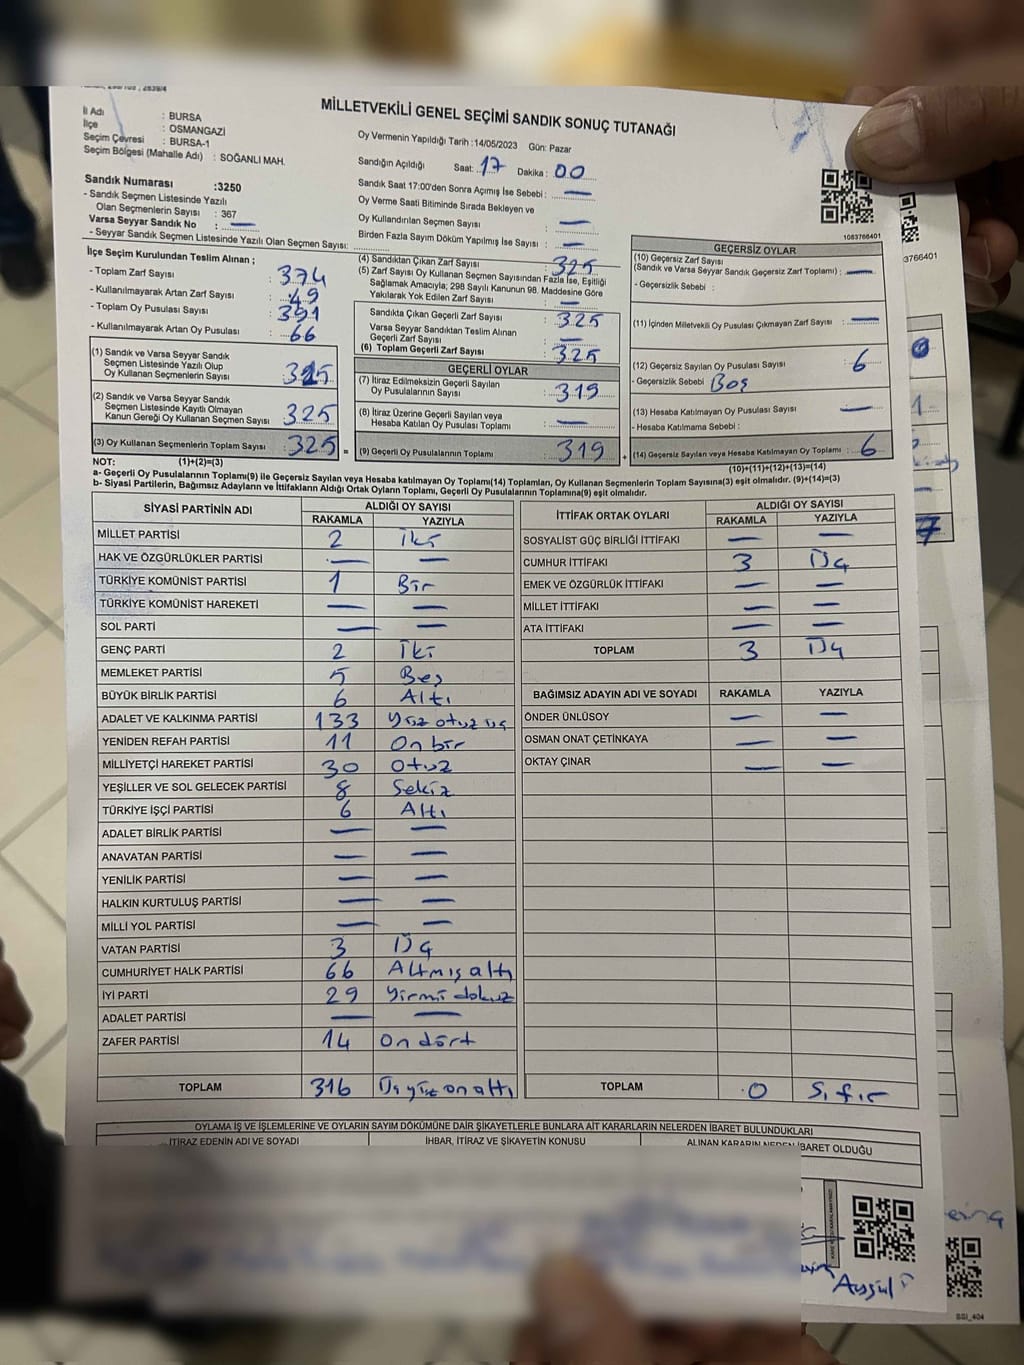 MİLLETVEKİLİ GENEL SEÇİMİ SANDIK SONUÇ TUTANAĞI
İl Adı : BURSA
İlçe : OSMANGAZİ
Seçim Çevresi : BURSA-1
Seçim Bölgesi (Mahalle Adı) : SOĞANLI MAH.
Sandık Numarası :3250
- Sandık Seçmen Listesinde Yazılı
Olan Seçmenlerin Sayısı : 367
Varsa Seyyar Sandık No : —
- Seyyar Sandık Seçmen Listesinde Yazılı Olan Seçmen Sayısı:
Oy Vermenin Yapıldığı Tarih :14/05/2023 Gün: Pazar
Sandığın Açıldığı Saat: 17 Dakika : 00
Sandık Saat 17:00'den Sonra Açımış İse Sebebi : —
Oy Verme Saati Bitiminde Sırada Bekleyen ve
Oy Kullandırılan Seçmen Sayısı : —
Birden Fazla Sayım Döküm Yapılmış İse Sayısı : —
1083766401
3766401
İlçe Seçim Kurulundan Teslim Alınan ;
- Toplam Zarf Sayısı : 374
- Kullanılmayarak Artan Zarf Sayısı : 49
- Toplam Oy Pusulası : 391
- Kullanılmayarak Artan Oy Pusulası : 66
(1) Sandık ve Varsa Seyyar Sandık
Seçmen Listesinde Yazılı Olup
Oy Kullanan Seçmenlerin Sayısı : 325
(2) Sandık ve Varsa Seyyar Sandık
Seçmen Listesinde Kayıtlı Olmayan
Kanun Gereği Oy Kullanan Seçmen Sayısı : 325
(3) Oy Kullanan Seçmenlerin Toplam Sayısı : 325 =
(4) Sandıktan Çıkan Zarf Sayısı : 325
(5) Zarf Sayısı Oy Kullanan Seçmen Sayısından Fazla İse, Eşitliği
Sağlamak Amacıyla; 298 Sayılı Kanunun 98. Maddesine Göre
Yakılarak Yok Edilen Zarf Sayısı : —
Sandıkta Çıkan Geçerli Zarf Sayısı : 325
Varsa Seyyar Sandıktan Teslim Alınan
Geçerli Zarf Sayısı : —
(6) Toplam Geçerli Zarf Sayısı : 325
GEÇERLİ OYLAR
(7) İtiraz Edilmeksizin Geçerli Sayılan
Oy Pusulalarının Sayısı : 319
(8) İtiraz Üzerine Geçerli Sayılan veya
Hesaba Katılan Oy Pusulası Toplamı : —
(9) Geçerli Oy Pusulalarının Toplamı : 319 +
GEÇERSİZ OYLAR
(10) Geçersiz Zarf Sayısı
(Sandık ve Varsa Seyyar Sandık Geçersiz Zarf Toplamı) : —
- Geçersizlik Sebebi :
(11) İçinden Milletvekili Oy Pusulası Çıkmayan Zarf Sayısı : —
(12) Geçersiz Sayılan Oy Pusulası Sayısı : 6
- Geçersizlik Sebebi Boş
(13) Hesaba Katılmayan Oy Pusulası Sayısı : —
- Hesaba Katılmama Sebebi :
(14) Geçersiz Sayılan veya Hesaba Katılmayan Oy Toplamı : 6
NOT: (1)+(2)=(3) (10)+(11)+(12)+(13)=(14)
a- Geçerli Oy Pusulalarının Toplamı(9) ile Geçersiz Sayılan veya Hesaba katılmayan Oy Toplamı(14) Toplamları, Oy Kullanan Seçmenlerin Toplam Sayısına(3) eşit olmalıdır. (9)+(14)=(3)
b- Siyasi Partilerin, Bağımsız Adayların ve İttifakların Aldığı Ortak Oyların Toplamı, Geçerli Oy Pusulalarının Toplamına(9) eşit olmalıdır.
SİYASİ PARTİNİN ADI ALDIĞI OY SAYISI
RAKAMLA YAZIYLA
MİLLET PARTİSİ 2 İki
HAK VE ÖZGÜRLÜKLER PARTİSİ — —
TÜRKİYE KOMÜNİST PARTİSİ 1 Bir
TÜRKİYE KOMÜNİST HAREKETİ — —
SOL PARTİ — —
GENÇ PARTİ 2 İki
MEMLEKET PARTİSİ 5 Beş
BÜYÜK BİRLİK PARTİSİ 6 Altı
ADALET VE KALKINMA PARTİSİ 133 Yüz otuz üç
YENİDEN REFAH PARTİSİ 11 On bir
MİLLİYETÇİ HAREKET PARTİSİ 30 Otuz
YEŞİLLER VE SOL GELECEK PARTİSİ 8 Sekiz
TÜRKİYE İŞÇİ PARTİSİ 6 Altı
ADALET BİRLİK PARTİSİ — —
ANAVATAN PARTİSİ — —
YENİLİK PARTİSİ — —
HALKIN KURTULUŞ PARTİSİ — —
MİLLİ YOL PARTİSİ — —
VATAN PARTİSİ 3 Üç
CUMHURİYET HALK PARTİSİ 66 Altmış altı
İYİ PARTİ 29 Yirmi dokuz
ADALET PARTİSİ — —
ZAFER PARTİSİ 14 On dört
TOPLAM 316 Üç yüz on altı
İTTİFAK ORTAK OYLARI ALDIĞI OY SAYISI
RAKAMLA YAZIYLA
SOSYALİST GÜÇ BİRLİĞİ İTTİFAKI — —
CUMHUR İTTİFAKI 3 Üç
EMEK VE ÖZGÜRLÜK İTTİFAKI — —
MİLLET İTTİFAKI — —
ATA İTTİFAKI — —
TOPLAM 3 Üç
BAĞIMSIZ ADAYIN ADI VE SOYADI RAKAMLA YAZIYLA
ÖNDER ÜNLÜSOY — —
OSMAN ONAT ÇETİNKAYA — —
OKTAY ÇINAR — —
TOPLAM 0 Sıfır
OYLAMA İŞ VE İŞLEMLERİNE VE OYLARIN SAYIM DÖKÜMÜNE DAİR ŞİKAYETLERLE BUNLARA AİT KARARLARIN NELERDEN İBARET BULUNDUKLARI
İTİRAZ EDENİN ADI VE SOYADI İHBAR, İTİRAZ VE ŞİKAYETİN KONUSU ALINAN KARARIN NEDEN İBARET OLDUĞU
Aysül